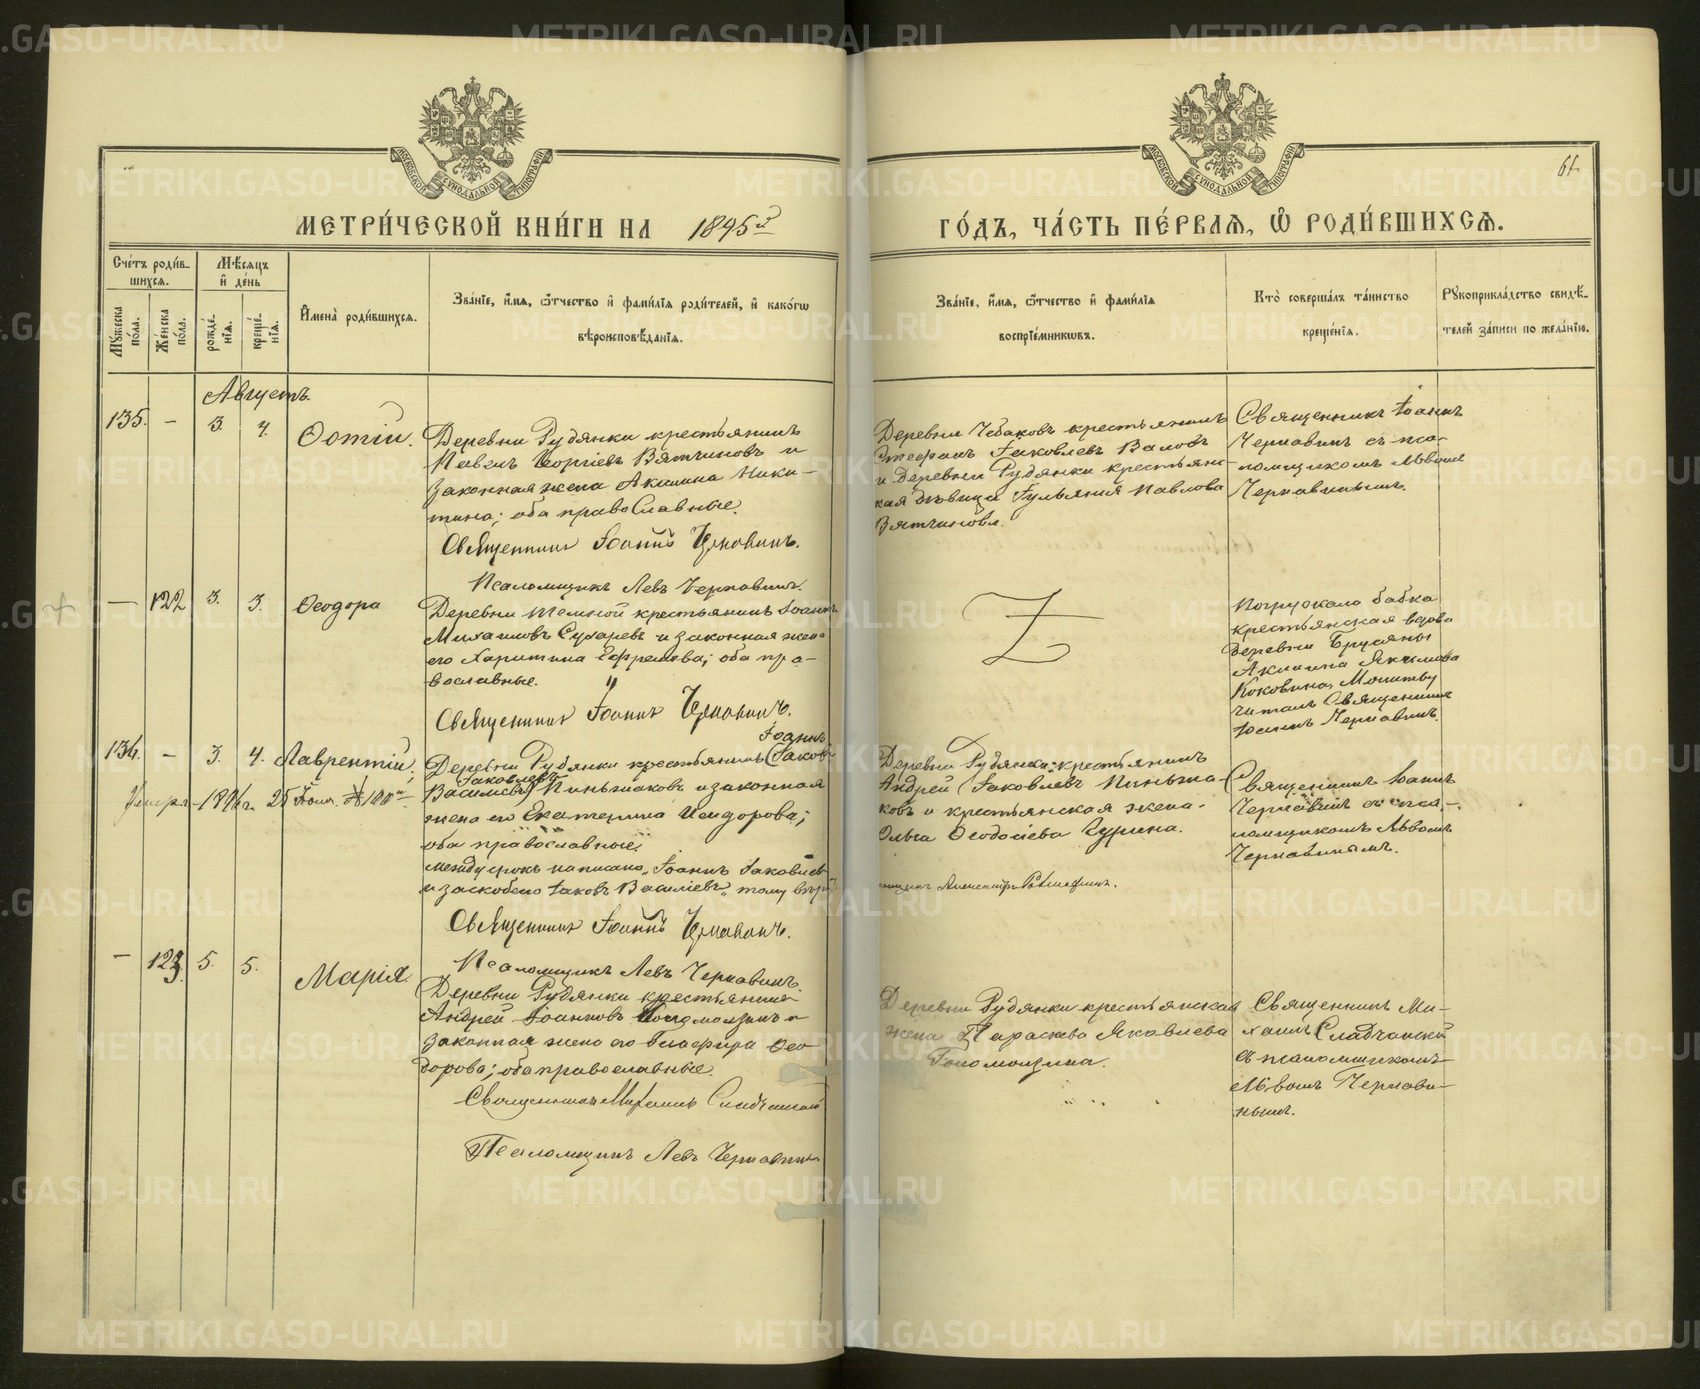 МЕТРИ́ЧЕСКОЙ КНИ́ГИ НА 1895й
ГО́ДЪ, ЧА́СТЬ ПЕ́РВАЯ, Ѡ РОДИ́ВШИХСЯ.
61.
Сче́тъ роди́в-
шихся.
Мѣ́сяцъ
и де́нь
Му́жеска
по́ла.
Же́нска
по́ла.
рожде́-
нїя.
креще́-
нїя.
И҆мена̀ роди́вшихся.
Зва́нїе, и҆́мя, ѻ҆́тчество и҆ фами́лїя роди́телей, и҆ како́гѡ
вѣроисповѣ́данїя.
Зва́нїе, и҆́мя, ѻ҆́тчество и҆ фами́лїя
воспрїе́мникѡвъ.
Кто̀ соверша́лъ та́инство
креще́нїя.
Рꙋкоприкла́дство свидѣ́-
телей за́писи по жела́нїю.
Августъ.
135. – 3. 4. Ѳотій.
Деревни Рудянки крестьянинъ
Павелъ Георгіевъ Вятчиновъ и
законная жена Акилина Ники-
тина; оба православные.
Священникъ Іоаннъ Чернавинъ.
Псаломщикъ Левъ Чернавинъ.
Деревни Чебаковъ крестьянинъ
Стефанъ Іаковлевъ Валовъ
и деревни Рудянки крестьянс-
кая дѣвица Іульянія Павлова
Вятчинова.
Священникъ Іоаннъ
Чернавинъ съ пса-
ломщикомъ Львомъ
Чернавинымъ.
– 122 3. 3. Ѳеодора
Деревни Темной крестьянинъ Іоаннъ
Михаиловъ Сухаревъ и законная жена
его Харитина Ефремова; оба пра-
вославные.
Священникъ Іоаннъ Чернавинъ.
Z
Погружала бабка
крестьянская вдова
деревни Брусяны
Акилина Якимова
Коковина, Молитву
читалъ Священникъ
Іоаннъ Чернавинъ.
136. – 3. 4. Лаврентій.
Умеръ 1896 г. 25 Іюня
Іоаннъ
Деревни Рудянки крестьянинъ (Іаковъ
Іаковлевъ
Василіевъ) Пиньжаковъ и законная
жена его Екатерина Исидорова;
оба православные.
между строкъ написано „Іоаннъ Іаковлевъ
и заскоблено Іаковъ Василіевъ„ тому вѣрить
Священникъ Іоаннъ Чернавинъ.
Псаломщикъ Левъ Чернавинъ.
Деревни Рудянки крестьянинъ
Андрей Іаковлевъ Пиньжа-
ковъ и крестьянская жена
Ольга Ѳеодосіева Чурина.
Александръ
Священникъ Іоаннъ
Чернавинъ съ пса-
ломщикомъ Львомъ
Чернавинымъ.
– 123. 5. 5. Марія.
Деревни Рудянки крестьянинъ
Андрей Іоанновъ Голомолзинъ и
законная жена его Глафира Ѳео-
дорова; оба православные.
Священникъ Михаилъ Славчанскій
Псаломщикъ Левъ Чернавинъ
Деревни Рудянки крестьянская
жена Параскева Яковлева
Голомолзина.
Священникъ Ми-
хаилъ Славчанскій
съ псаломщикомъ
Львомъ Чернави-
нымъ.
METRIKI.GASO-URAL.RU